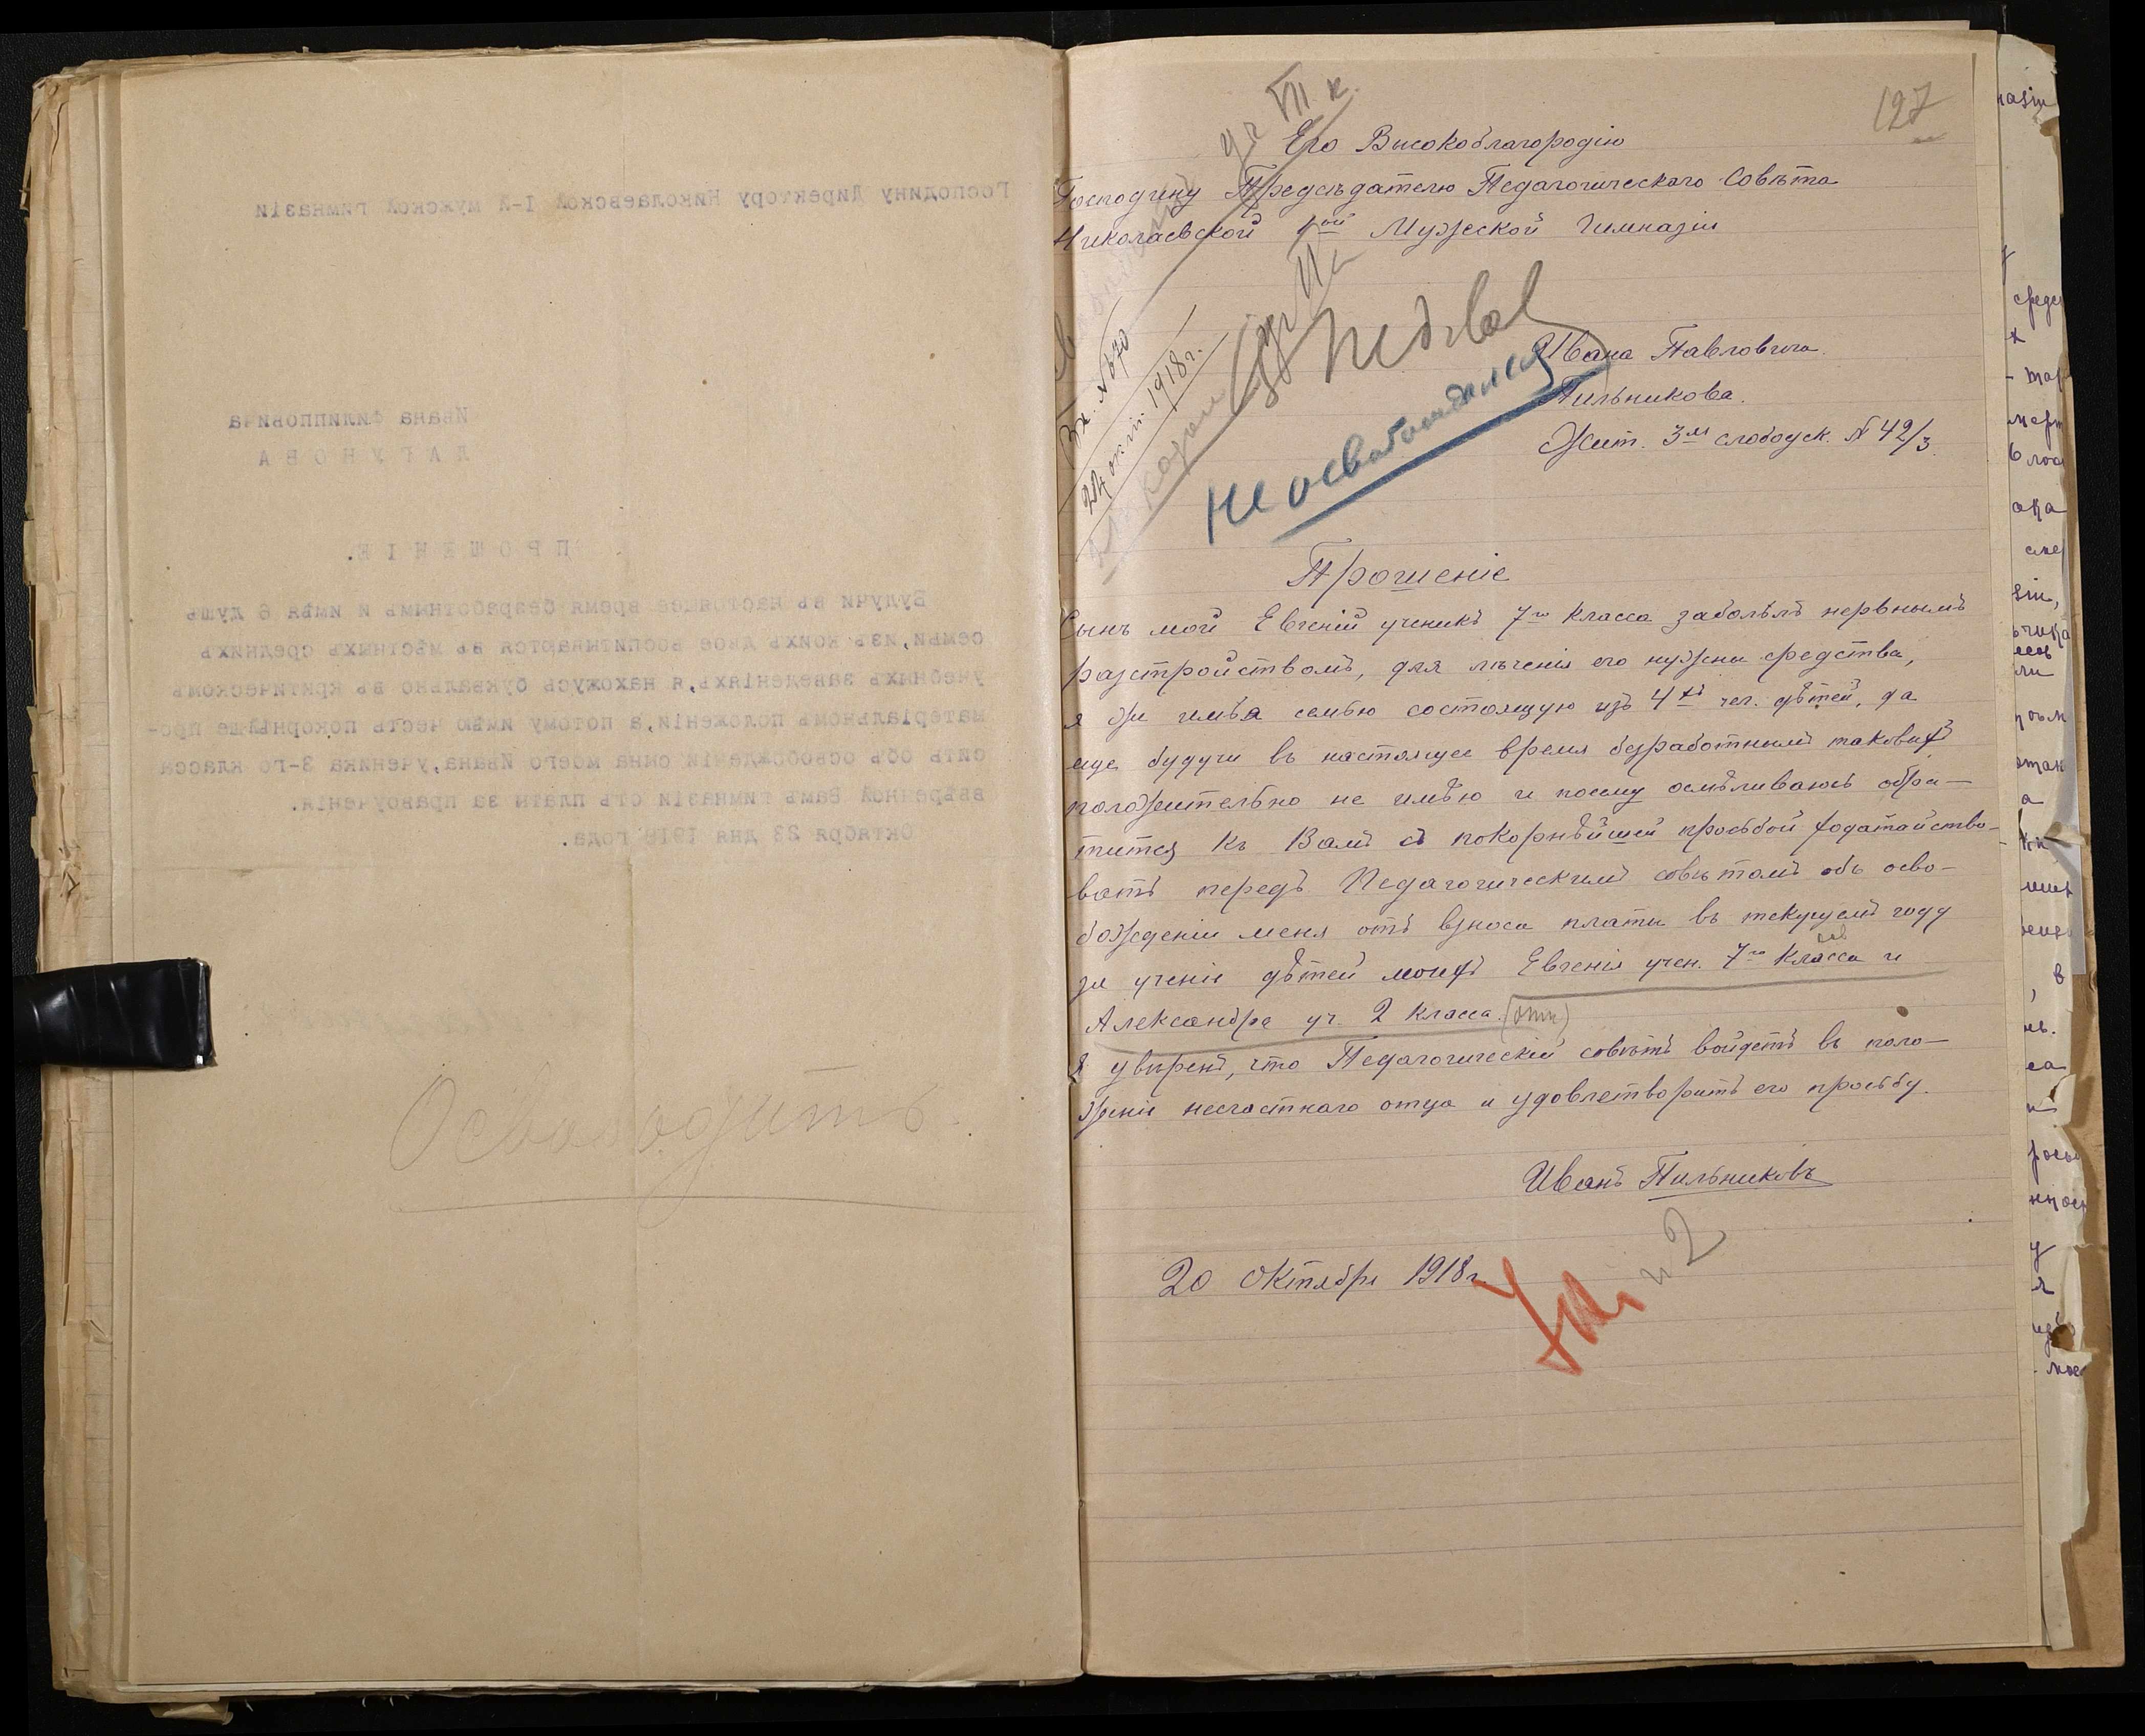 Господину Директору Николаевской 1-й мужской гимназіи
Ивана Филипповича
ЛАГУНОВА
ПРОШЕНІЕ.
Будучи въ настоящее время безработнымъ и имѣя 6 душъ
семьи, изъ коихъ двое воспитываются въ мѣстныхъ среднихъ
учебныхъ заведеніяхъ, я нахожусь буквально въ критическомъ
матеріальномъ положеніи, а потому имѣю честь покорнѣйше про-
сить объ освобожденіи сына моего Ивана, ученика 3-го класса
ввѣренной Вамъ гимназіи отъ платы за правоученія.
Октября 23 дня 1918 года.
Освободить
127
уч VII к.
Его Высокоблагородію
Господину Предсѣдателю Педагогическаго Совѣта
Николаевской 1ой Мужеской Гимназіи
Вх. №70
24 окт. 1918 г.
Не освобождается
Ивана Павловича
Пильникова.
Жит. 3я слободск. № 42/3.
Прошеніе
Сынъ мой Евгеній ученикъ 7го класса заболѣлъ нервнымъ
разстройствомъ, для лѣченія его нужны средства,
я же имѣя семью состоящую изъ 4хъ чел. дѣтей, да
еще будучи въ настоящее время безработнымъ таковыхъ
положительно не имѣю и посему осмѣливаюсь обра-
титься къ Вамъ съ покорнѣйшей просьбой ходатайство-
вать передъ Педагогическимъ совѣтомъ объ осво-
божденіи меня отъ взноса платы въ текущемъ году
за ученіе дѣтей моихъ Евгенія учен. 7го класса и
Александра уч. 2 класса.
Я увѣренъ, что Педагогическій совѣтъ войдетъ въ поло-
женіе несчастнаго отца и удовлетворитъ его просьбу.
Иванъ Пильниковъ
20 Октября 1918 г.
и 2